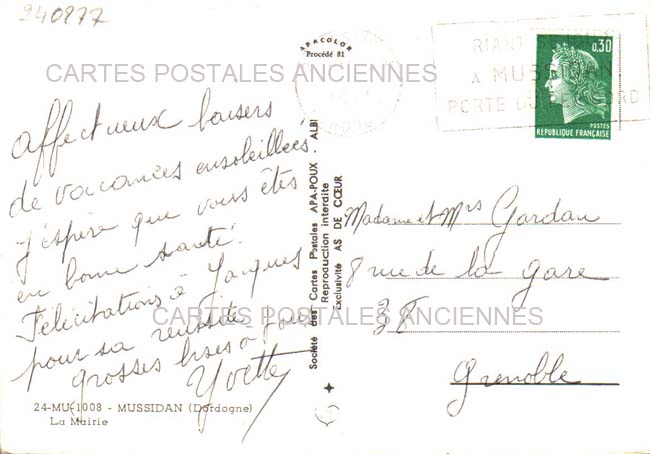 940877
APACOLOR
Procédé 81
RIANT
à MUSSIDAN
PORTE DU PERIGORD
0,30
POSTES
REPUBLIQUE FRANÇAISE
CARTES POSTALES ANCIENNES
affectueux baisers
de vaccances ensoleillées.
j'espère que vous êtes
en bonne santé.
Félicitations à Jacques
pour sa réussite
grosses bises à tous
Yvette
Société des Cartes Postales APA-POUX ALBI
Reproduction interdite
Exclusivité AS DE CŒUR
Madame et Mrs Gardan
8 rue de la gare
38
Grenoble
CARTES POSTALES ANCIENNES
24-MU-1008 - MUSSIDAN (Dordogne)
La Mairie